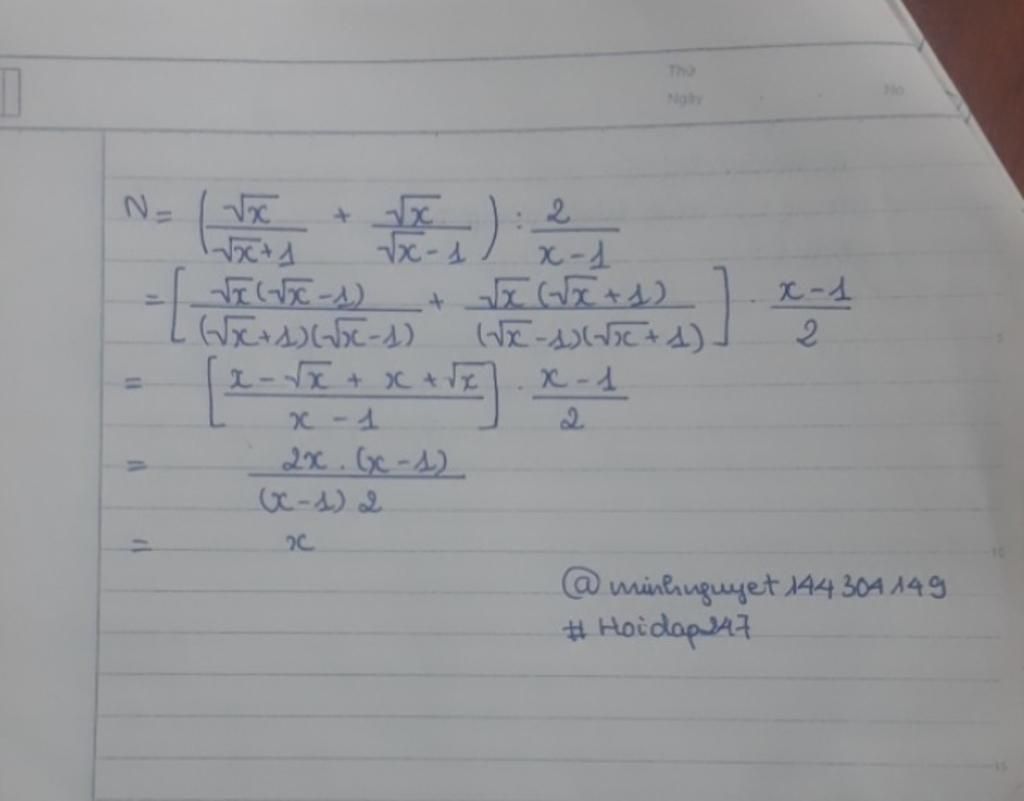 Thứ
Ngày
No
N = (√x/(√x+1) + √x/(√x-1)) : 2/(x-1)
= [√x(√x-1)/((√x+1)(√x-1)) + √x(√x+1)/((√x-1)(√x+1))] . (x-1)/2
= [(x-√x+x+√x)/(x-1)] . (x-1)/2
= 2x.(x-1)/((x-1)2)
= x
@minhnguyet144304149
#Hoidap247
5
10
15